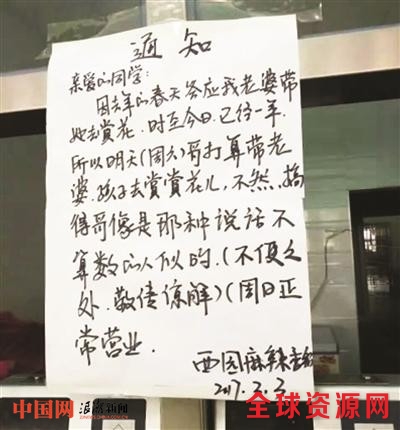 通知
亲爱的同学:
因去年的春天答应我老婆带
她去赏花.时至今日.已经一年.
所以明天(周六)哥打算带老
婆.孩子去赏赏花儿,不然,搞
得哥像是那种说话不
算数的人似的.(不便之
处.敬请谅解)(周日正
常营业.
西园麻辣香锅
2017.3.3
中国网 浪潮新闻
全球资源网